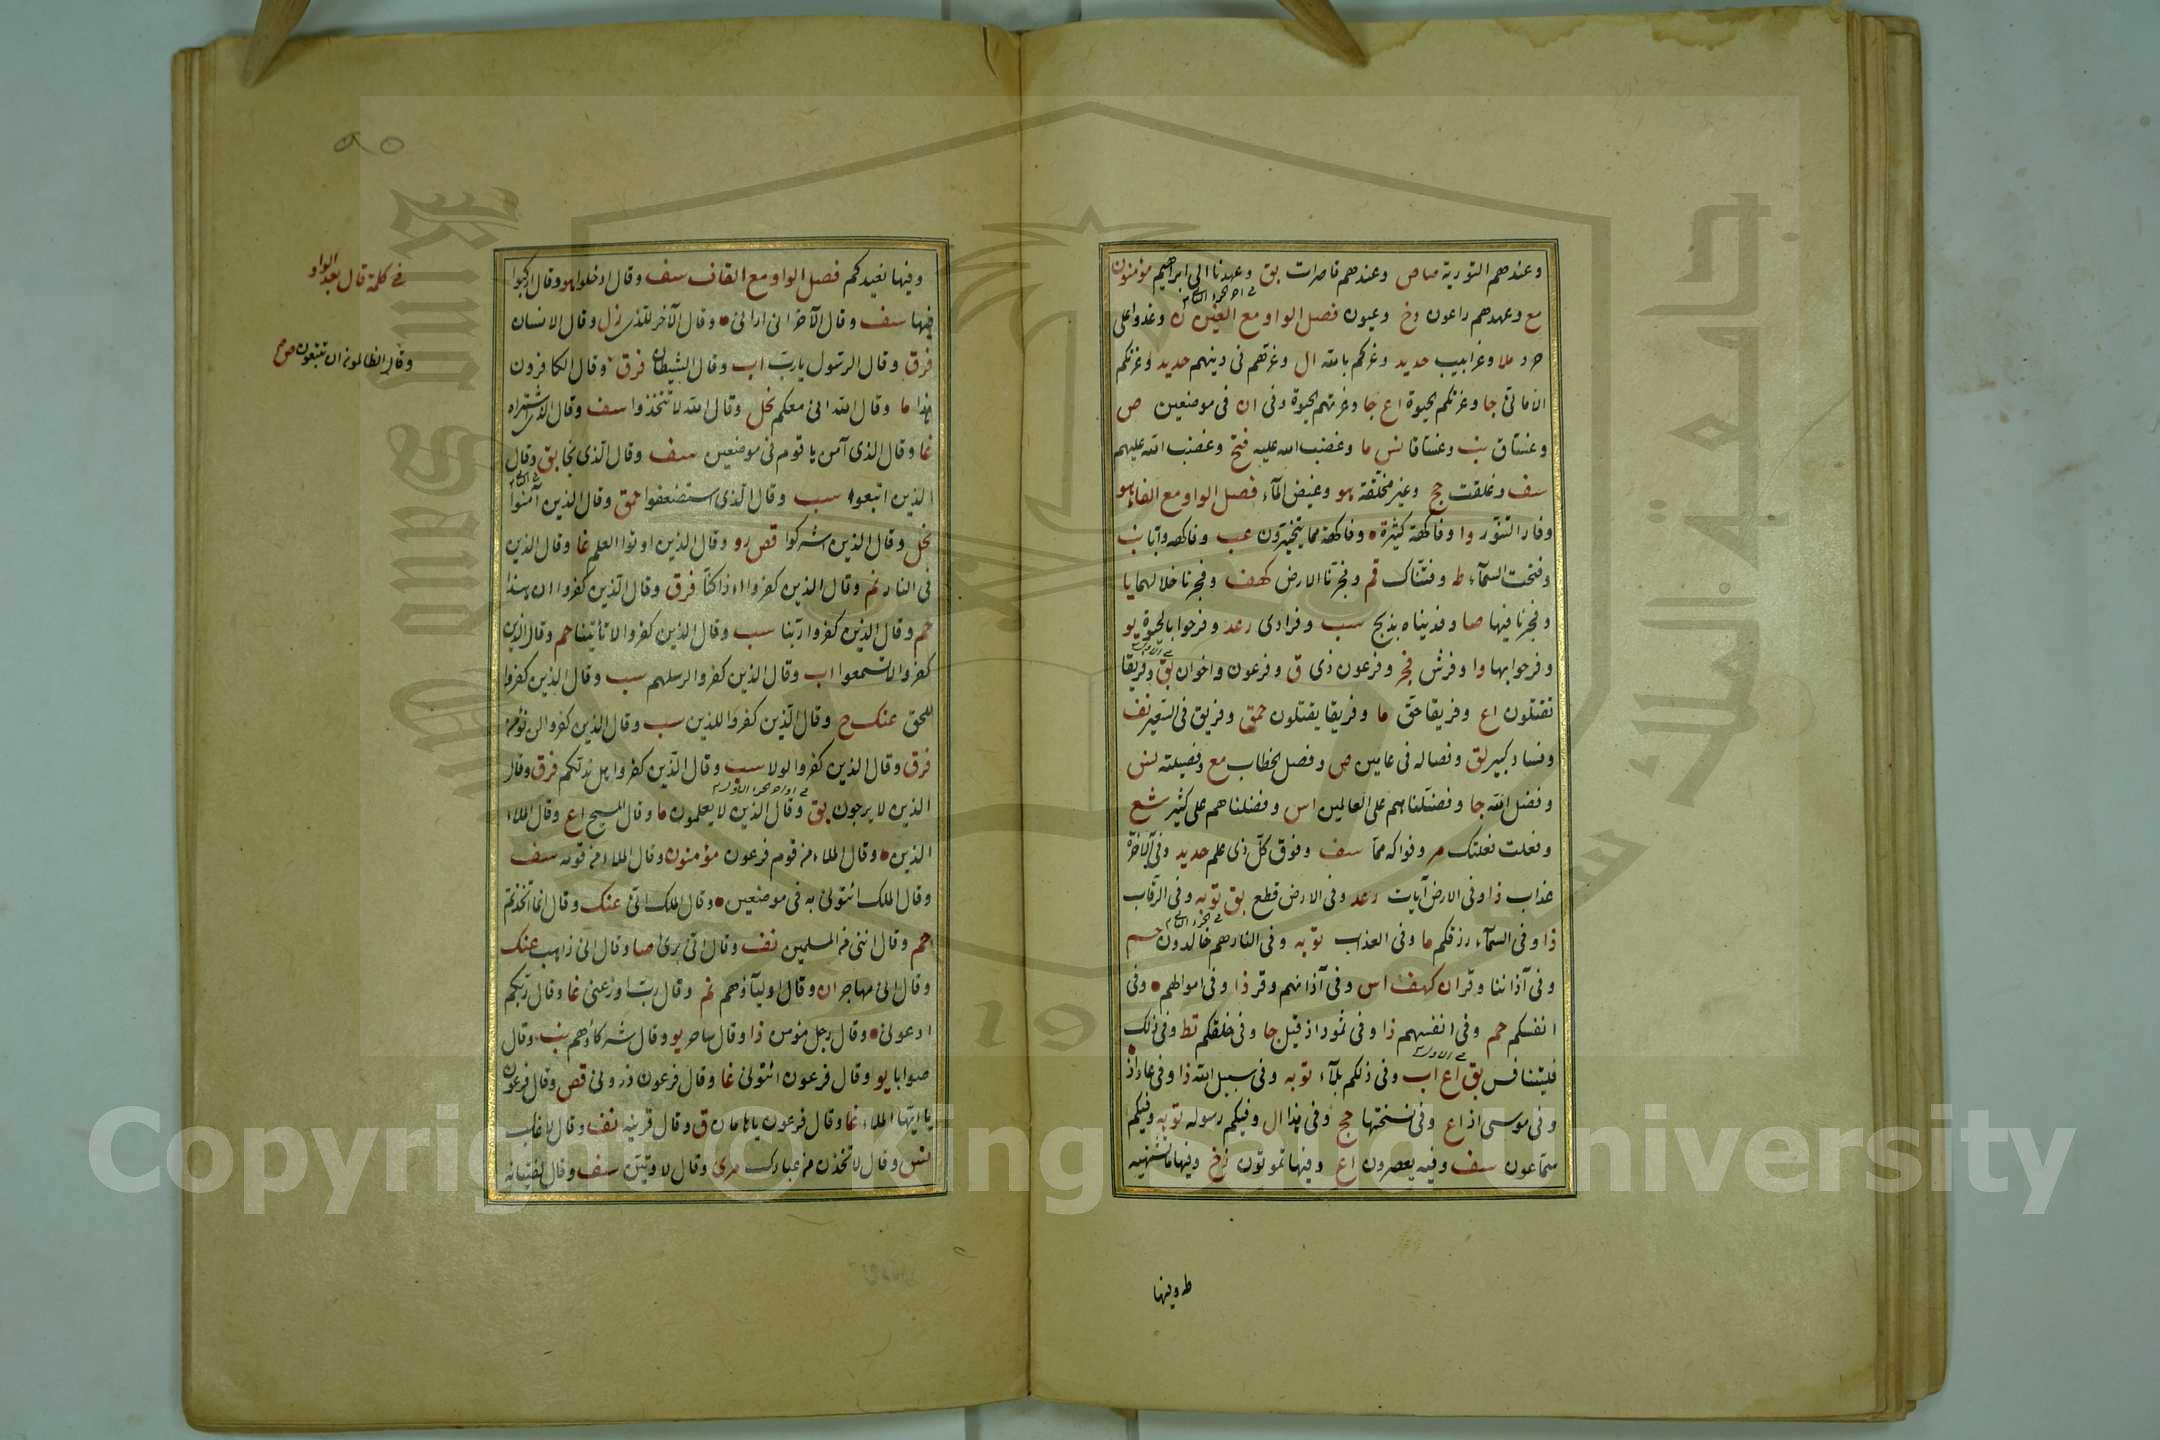 وعندهم التورية ما ص وعندهم قاصرات بق وعهدنا الى ابراهيم مؤمنون
مع وعهدهم راعون وخ وعيون فصل الواو مع الغين ن وغدوا على
حرد ملا وغرابيب حديد وغركم بالله ال وغرهم فى دينهم حديد وغرتكم
الامانى جا وغرتكم الحيوة اع جا وغرتهم الحيوة وفى ان فى موضعين ص
وغساق نب وغساقا نس ما وغضب الله عليه فتح وغضب الله عليهم
سف وغلقت حج وغير مخلقة هو وغيض المآء فصل الواو مع الفاء هو
وفار التنور وا وفاكهة كثيرة وفاكهة مما يتخيرون عب وفاكهة وابا نب
وفتحت السمآء ط وفتناك قم وفجرنا الارض كهف وفجرنا خلالهما يا
وفجرنا فيها صا وفديناه بذبح سب وفرادى رعد وفرحوا بالحيوة يو
وفرحوا بها وا وفرش فجر وفرعون ذى ق وفرعون واخوان بق وفريقا
تقتلون اع وفريقا حق ما وفريقا يقتلون حمق وفريق فى السعير نف
وفساد كبير لق وفصاله فى عامين ص وفصل الخطاب مع وفصيلته نس
وفضل الله جا وفضلناهم على العالمين اس وفضلناهم على كثير شع
وفعلت فعلتك مر وفواكه مما سف وفوق كل ذى علم حديد وفى الآخرة
عذاب ذا وفى الارض آيات رعد وفى الارض قطع بق توبه وفى الرقاب
ذا وفى السمآء رزقكم ما وفى العذاب توبه وفى النار هم خالدون حم
وفى آذاننا وقر ان كهف اس وفى آذانهم وقر ذا وفى اموالهم وفى
انفسكم حم وفى انفسهم ذا وفى ثمود اذ قيل جا وفى خلقكم تط وفى ذلك
فليتنافس بق اع اب وفى ذلكم بلآء توبه وفى سبيل الله ذا وفى عاد اذ
وفى موسى اذ اع وفى نسختها حج وفى هذا ال وفيكم رسوله توبه وفيكم
سماعون سف وفيه يعصرون اع وفيها تموتون زخ وفيها ما تشتهيه
ط وفيها
وفيها نعيدكم فصل الواو مع القاف سف وقال ادخلوا هو وقال اركبوا
فيها سف وقال الآخر انى ارانى وقال الآخر للذى زل وقال الانسان
فرق وقال الرسول يا رب اب وقال الشيطان فرق وقال الكافرون
هذا ما وقال الله انى معكم نحل وقال الله لا تتخذوا سف وقال الذى اشتراه
غا وقال الذى آمن يا قوم فى موضعين سف وقال الذى نجا بق وقال
الذين اتبعوا سب وقال الذى استضعفوا حمق وقال الذين آمنوا
نحل وقال الذين اشركوا قص رو وقال الذين اوتوا العلم غا وقال الذين
فى النار نم وقال الذين كفروا اءذا كنا فرق وقال الذين كفروا ان هذا
حم وقال الذين كفروا ربنا سب وقال الذين كفروا لا تأتينا حم وقال الذين
كفروا لا تسمعوا اب وقال الذين كفروا لرسلهم سب وقال الذين كفروا
للحق عنك ح وقال الذين كفروا للذين سب وقال الذين كفروا لن نؤمن
فرق وقال الذين كفروا لولا سب وقال الذين كفروا هل ندلكم فرق وقال
الذين لا يرجون بق وقال الذين لا يعلمون ما وقال المسيح اع وقال الملاء
الذين وقال الملاء من قوم فرعون مؤمنون وقال الملاء من قومه سف
وقال الملك ائتونى به فى موضعين وقال الملك انى عنك وقال انما اتخذتم
حم وقال اننى من المسلمين نف وقال انى برئ صا وقال انى ذاهب عنك
وقال انى مهاجر ان وقال اوليآؤهم نم وقال رب اوزعنى غا وقال ربكم
ادعونى وقال رجل مؤمن ذا وقال ساحر يو وقال شركاؤهم نب وقال
صوابا يو وقال فرعون ائتونى غا وقال فرعون ذرونى قص وقال فرعون
يا ايها الملاء غا وقال فرعون يا هامان ق وقال قرينه نف وقال لا غالب
نس وقال لاتخذن من عبادك مرى وقال لاوتين سف وقال لفتيانه
فى كلمة قال بعد الواو
وقال الظالمون ان تتبعون
Copyright © King Saud University
جامعة الملك سعود
King Saud University